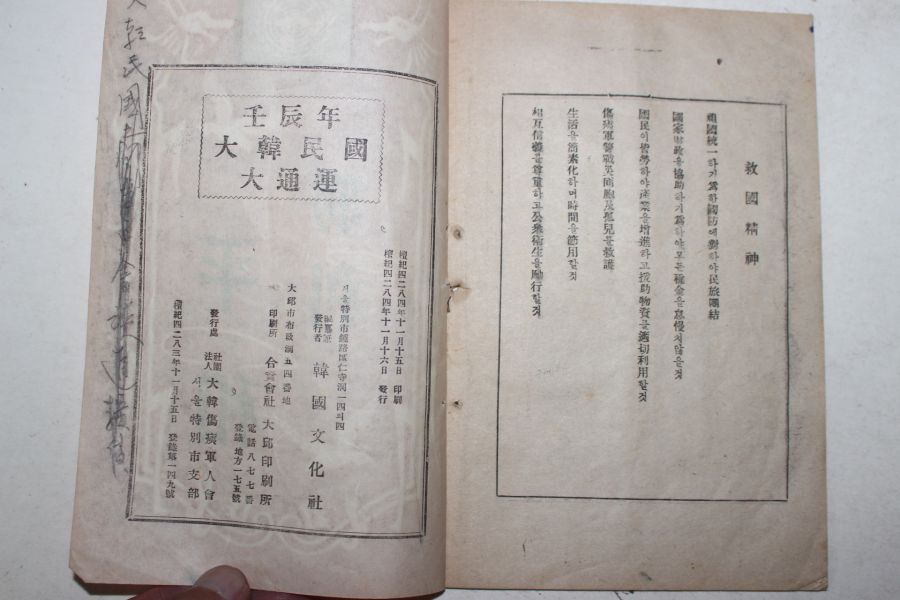 救國精神
祖國統一하기爲하야國防에對하야民族團結
國家財政을協助하기爲하야모든稅金을怠慢치않을것
國民이皆勞하야產業을增進하고援助物資를適切利用할것
傷痍軍警戰災同胞及孤兒를救護
生活을簡素化하며時間을節用할것
相互信義를尊重하고公衆衛生을勵行할것
壬辰年
大韓民國
大通運
檀紀四二八四年十一月十五日 印刷
檀紀四二八四年十一月十六日 發行
서울特別市鍾路區仁寺洞一四의四
編纂兼
發行者 韓國文化社
大邱市布政洞五四番地
印刷所 合資會社 大邱印刷所
電話八七七番
登錄 地方一七五號
發行處 社團法人 大韓傷痍軍人會
서울特別市支部
檀紀四二八三年十一月十五日 登錄第一四九號